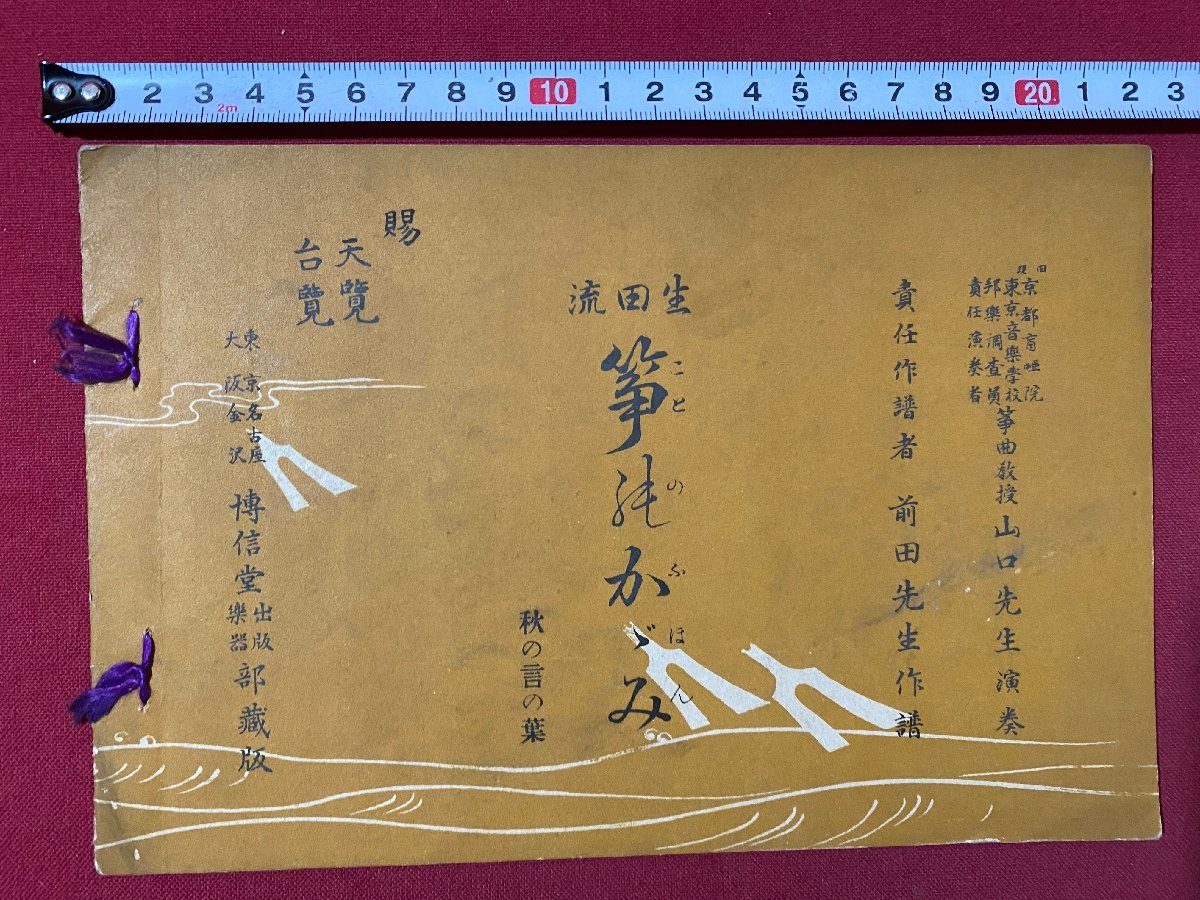 2 3 4 5 6 7 8 9 10 1 2 3 4 5 6 7 8 9 20 1 2 3
2m
旧 京都盲唖院
現 東京音樂学校
邦樂調査員
責任演奏者
箏曲教授 山口先生演奏
責任作譜者 前田先生作譜
生田流
箏能かゞみ
ことのふほん
秋の言の葉
賜
天覽
台覽
東京名古屋
大阪金沢
博信堂
出版
樂器
部藏版